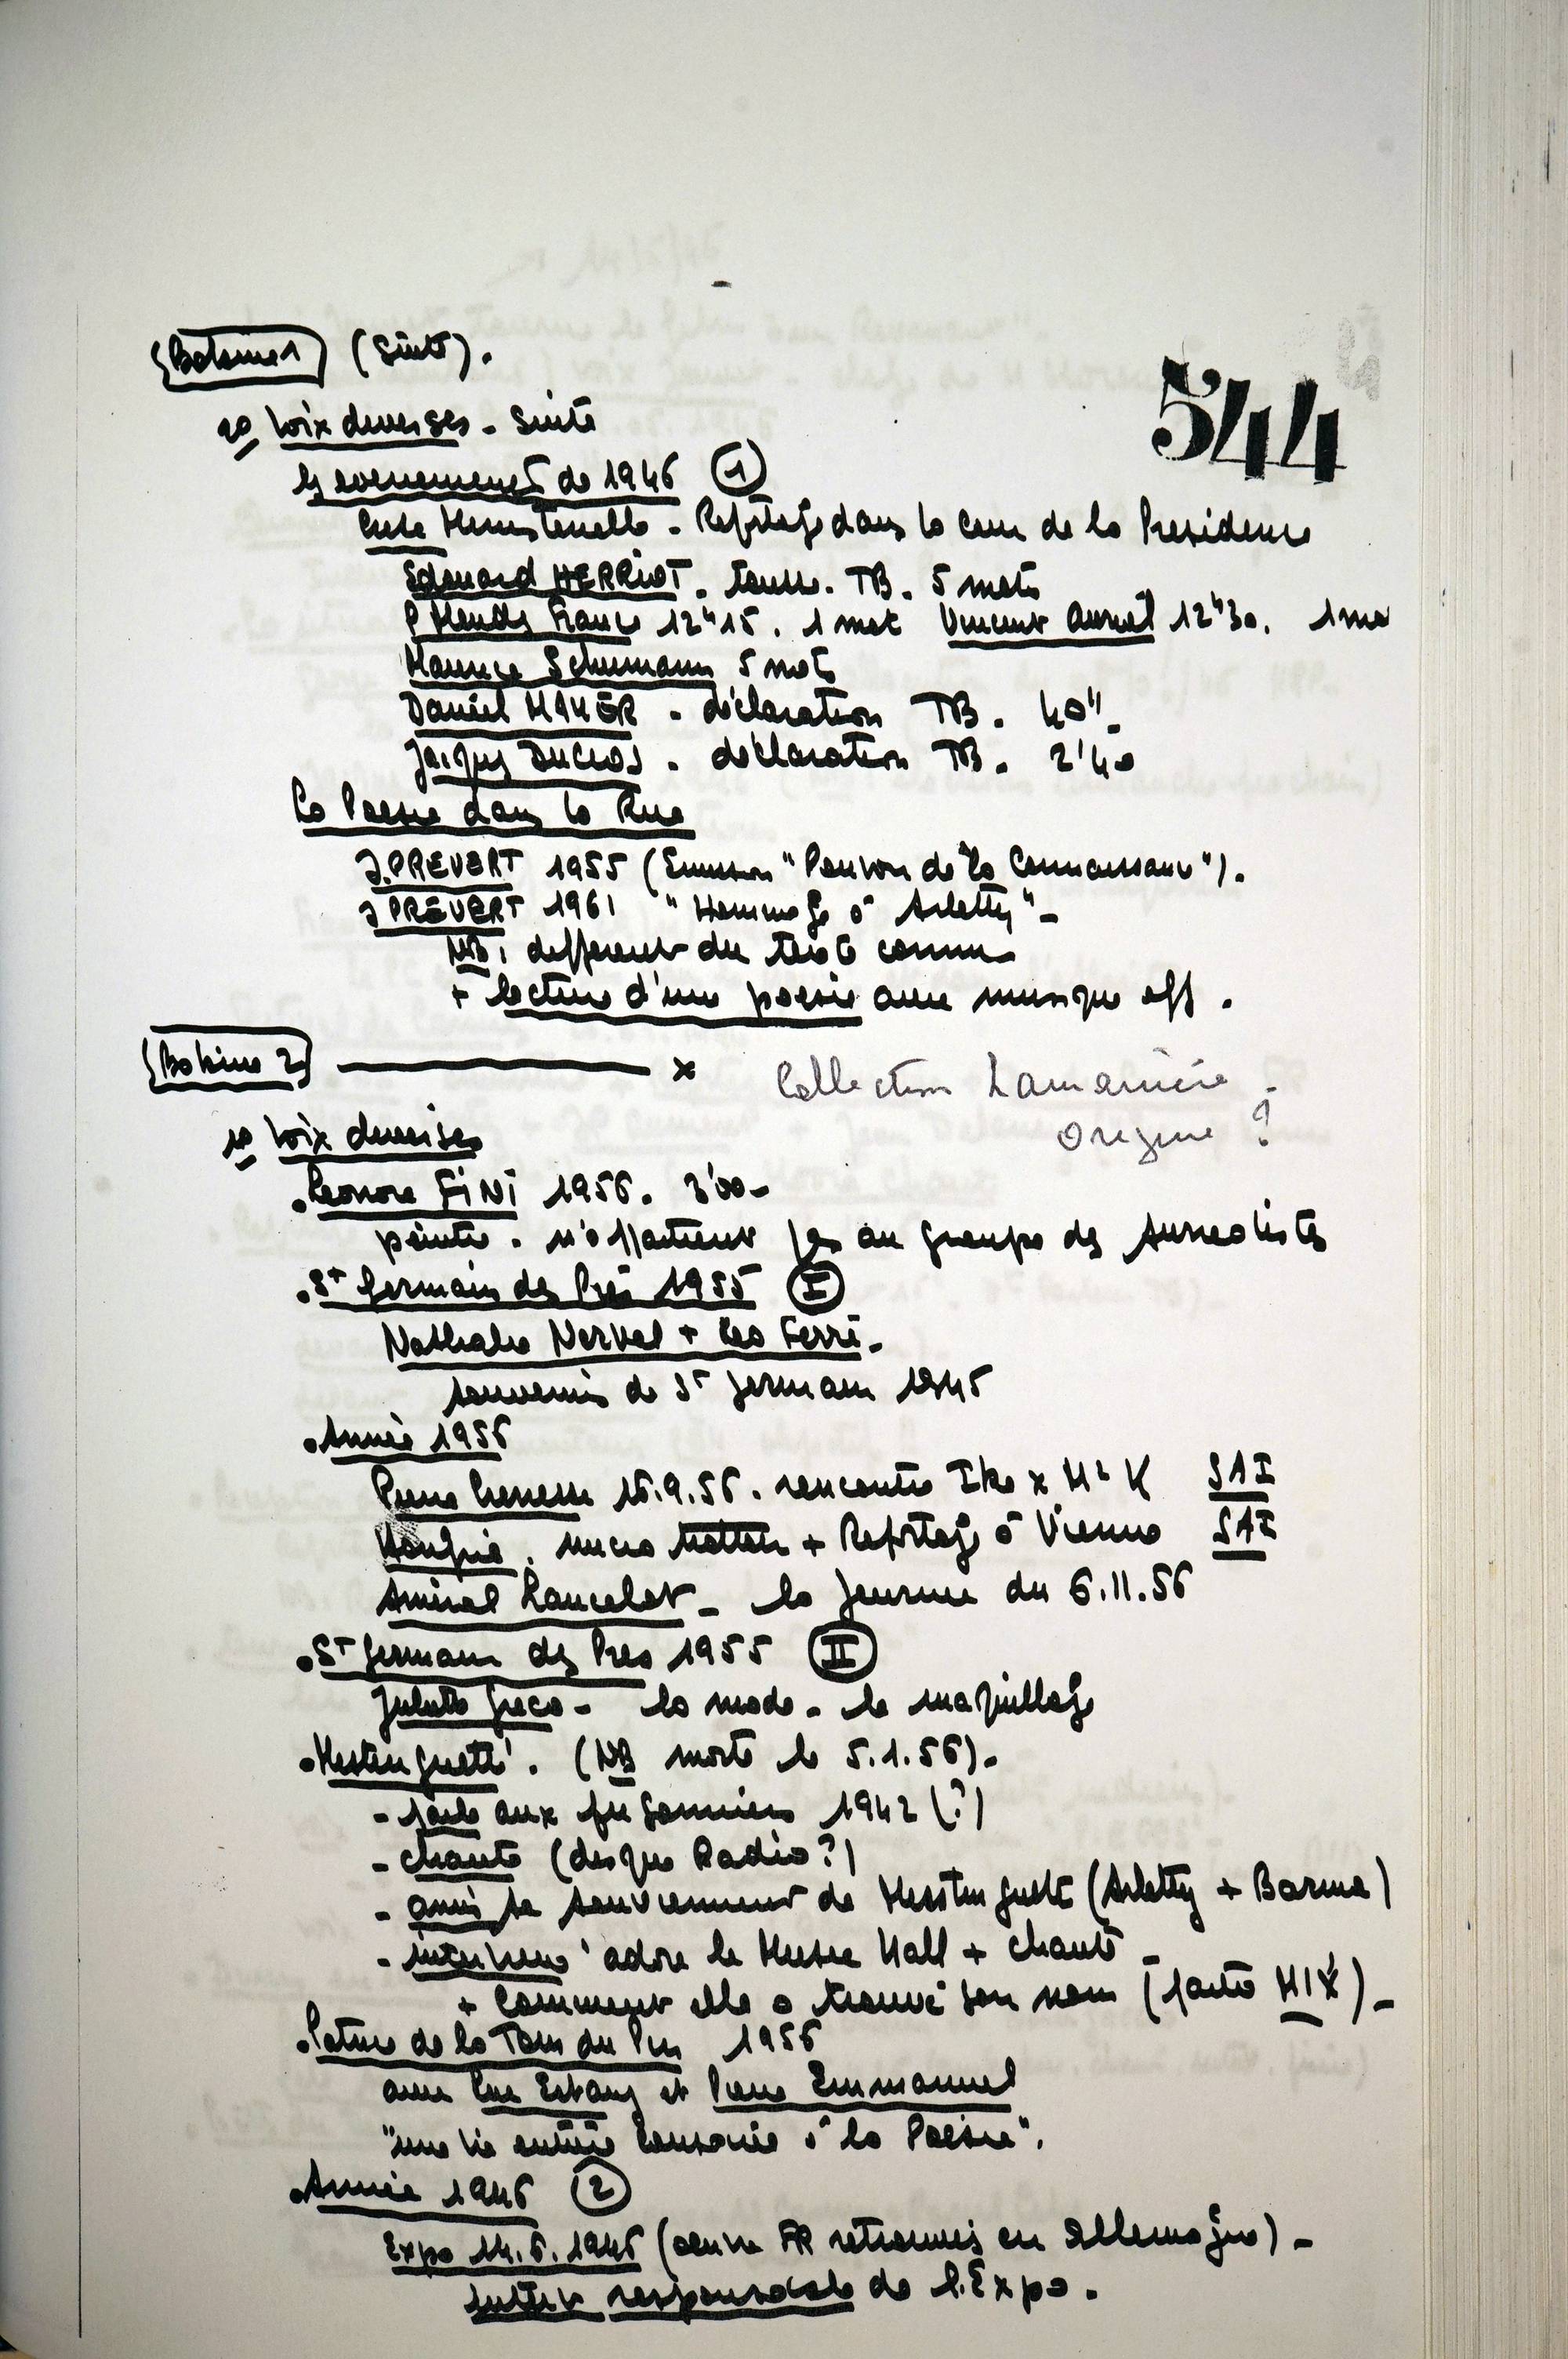 Bobine 1 (suite).
544
2° Voix diverses - Suite
les evenements de 1946 (1)
Reportage dans la cour de la Presidence
Edouard HERRIOT. TB. 5 mots
P Mendes France 12"15. 1 mot Vincent Auriol 12"30. 1 mo
Maurice Schumann 5 mots
Daniel MAYER - déclaration TB. 40".
Jacques DUCLOS. déclaration TB. 2'40
La Poesie dans la Rue
J.PREVERT 1955 (Emission "Pouvoir de la Connaissance").
J PRÉVERT 1961 "Hommage à Arletty"-
NB: different du texte connu
+ lecture d'une poesie avec musique off.
Bobine 2 x
Collection Lamarinière.
Origine ?
1° Voix diverses
.Leonore FINI 1956. 3'00-
peintre. n'appartient pas au groupe des surrealistes
.St Germain des Prés 1955 (I)
Nathalie Nerval + Leo Ferré.
souvenirs de St Germain 1945
.Année 1956
Pierre 16.9.56. rencontre Ike x Mr K SAI
Hongrie. micro + Reportage à Vienne SAI
Amiral Lancelot - la journee du 6.11.56
.St Germain des Pres 1955 (II)
Juliette Greco - la mode - le maquillage
.Mistinguett. (NB morte le 5.1.56).
- parle aux prisonniers 1942 (?)
- chante (disque Radio?)
- amis se souviennent de Misstinguett (Arletty + Barma)
- interview adore le Music Hall + chante -
+ Comment elle a trouvé son nom (partie MIX)-
.Patrice de la Tour du Pin 1956
avec Luc Estang et Pierre Emmanuel
"une vie entière consacrée à la Poesie".
.Année 1946 (2)
Expo 14.6.1946 (oeuvre FR retrouvés en Allemagne)-
responsable de l'Expo.